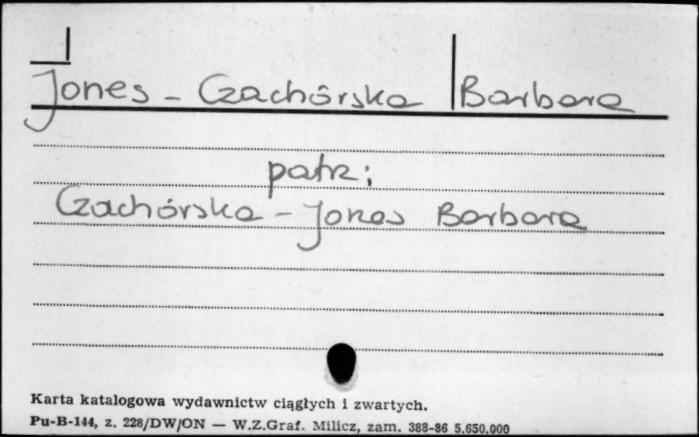 Jones - Czachórska Barbara
patrz:
Czachórska - Jones Barbara
Karta katalogowa wydawnictw ciągłych i zwartych.
Pu-B-144, z. 228/DW/ON — W.Z.Graf. Milicz, zam. 388-86 5.650.000